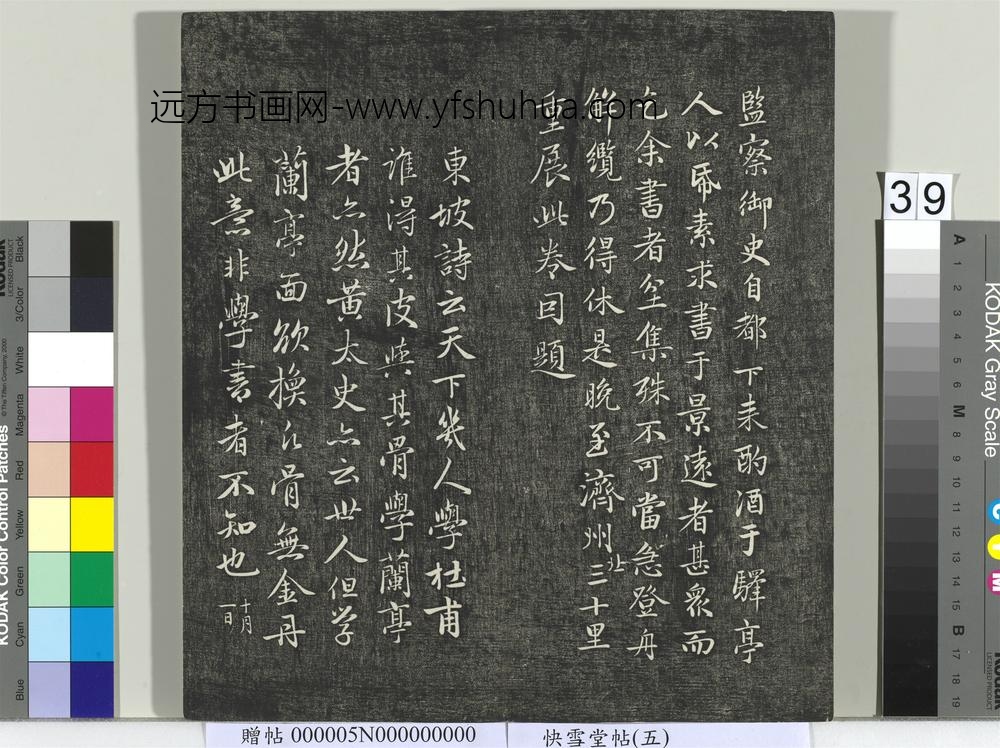 監察御史自都下来酌酒于驛亭
人以帋素求書于景遠者甚衆而
乞余書者坌集殊不可當急登舟
解纜乃得休是晚至濟州北三十里
重展此卷因題
東坡詩云天下幾人學杜甫
誰得其皮與其骨學蘭亭
者亦然黃太史亦云世人但学
蘭亭面欲換凡骨無金丹
此意非學書者不知也
十月一日
远方书画网-www.yfshuhua.com
39
贈帖 000005N000000000
快雪堂帖(五)
KODAK Color Control Patches
© The Tiffen Company, 2000
Kodak
LICENSED PRODUCT
Blue
Cyan
Green
Yellow
Red
Magenta
White
3/Color
Black
KODAK Gray Scale
A 1 2 3 4 5 6 M 8 9 10 11 12 13 14 15 B 17 18 19
C
Y
M
Kodak
LICENSED PRODUCT